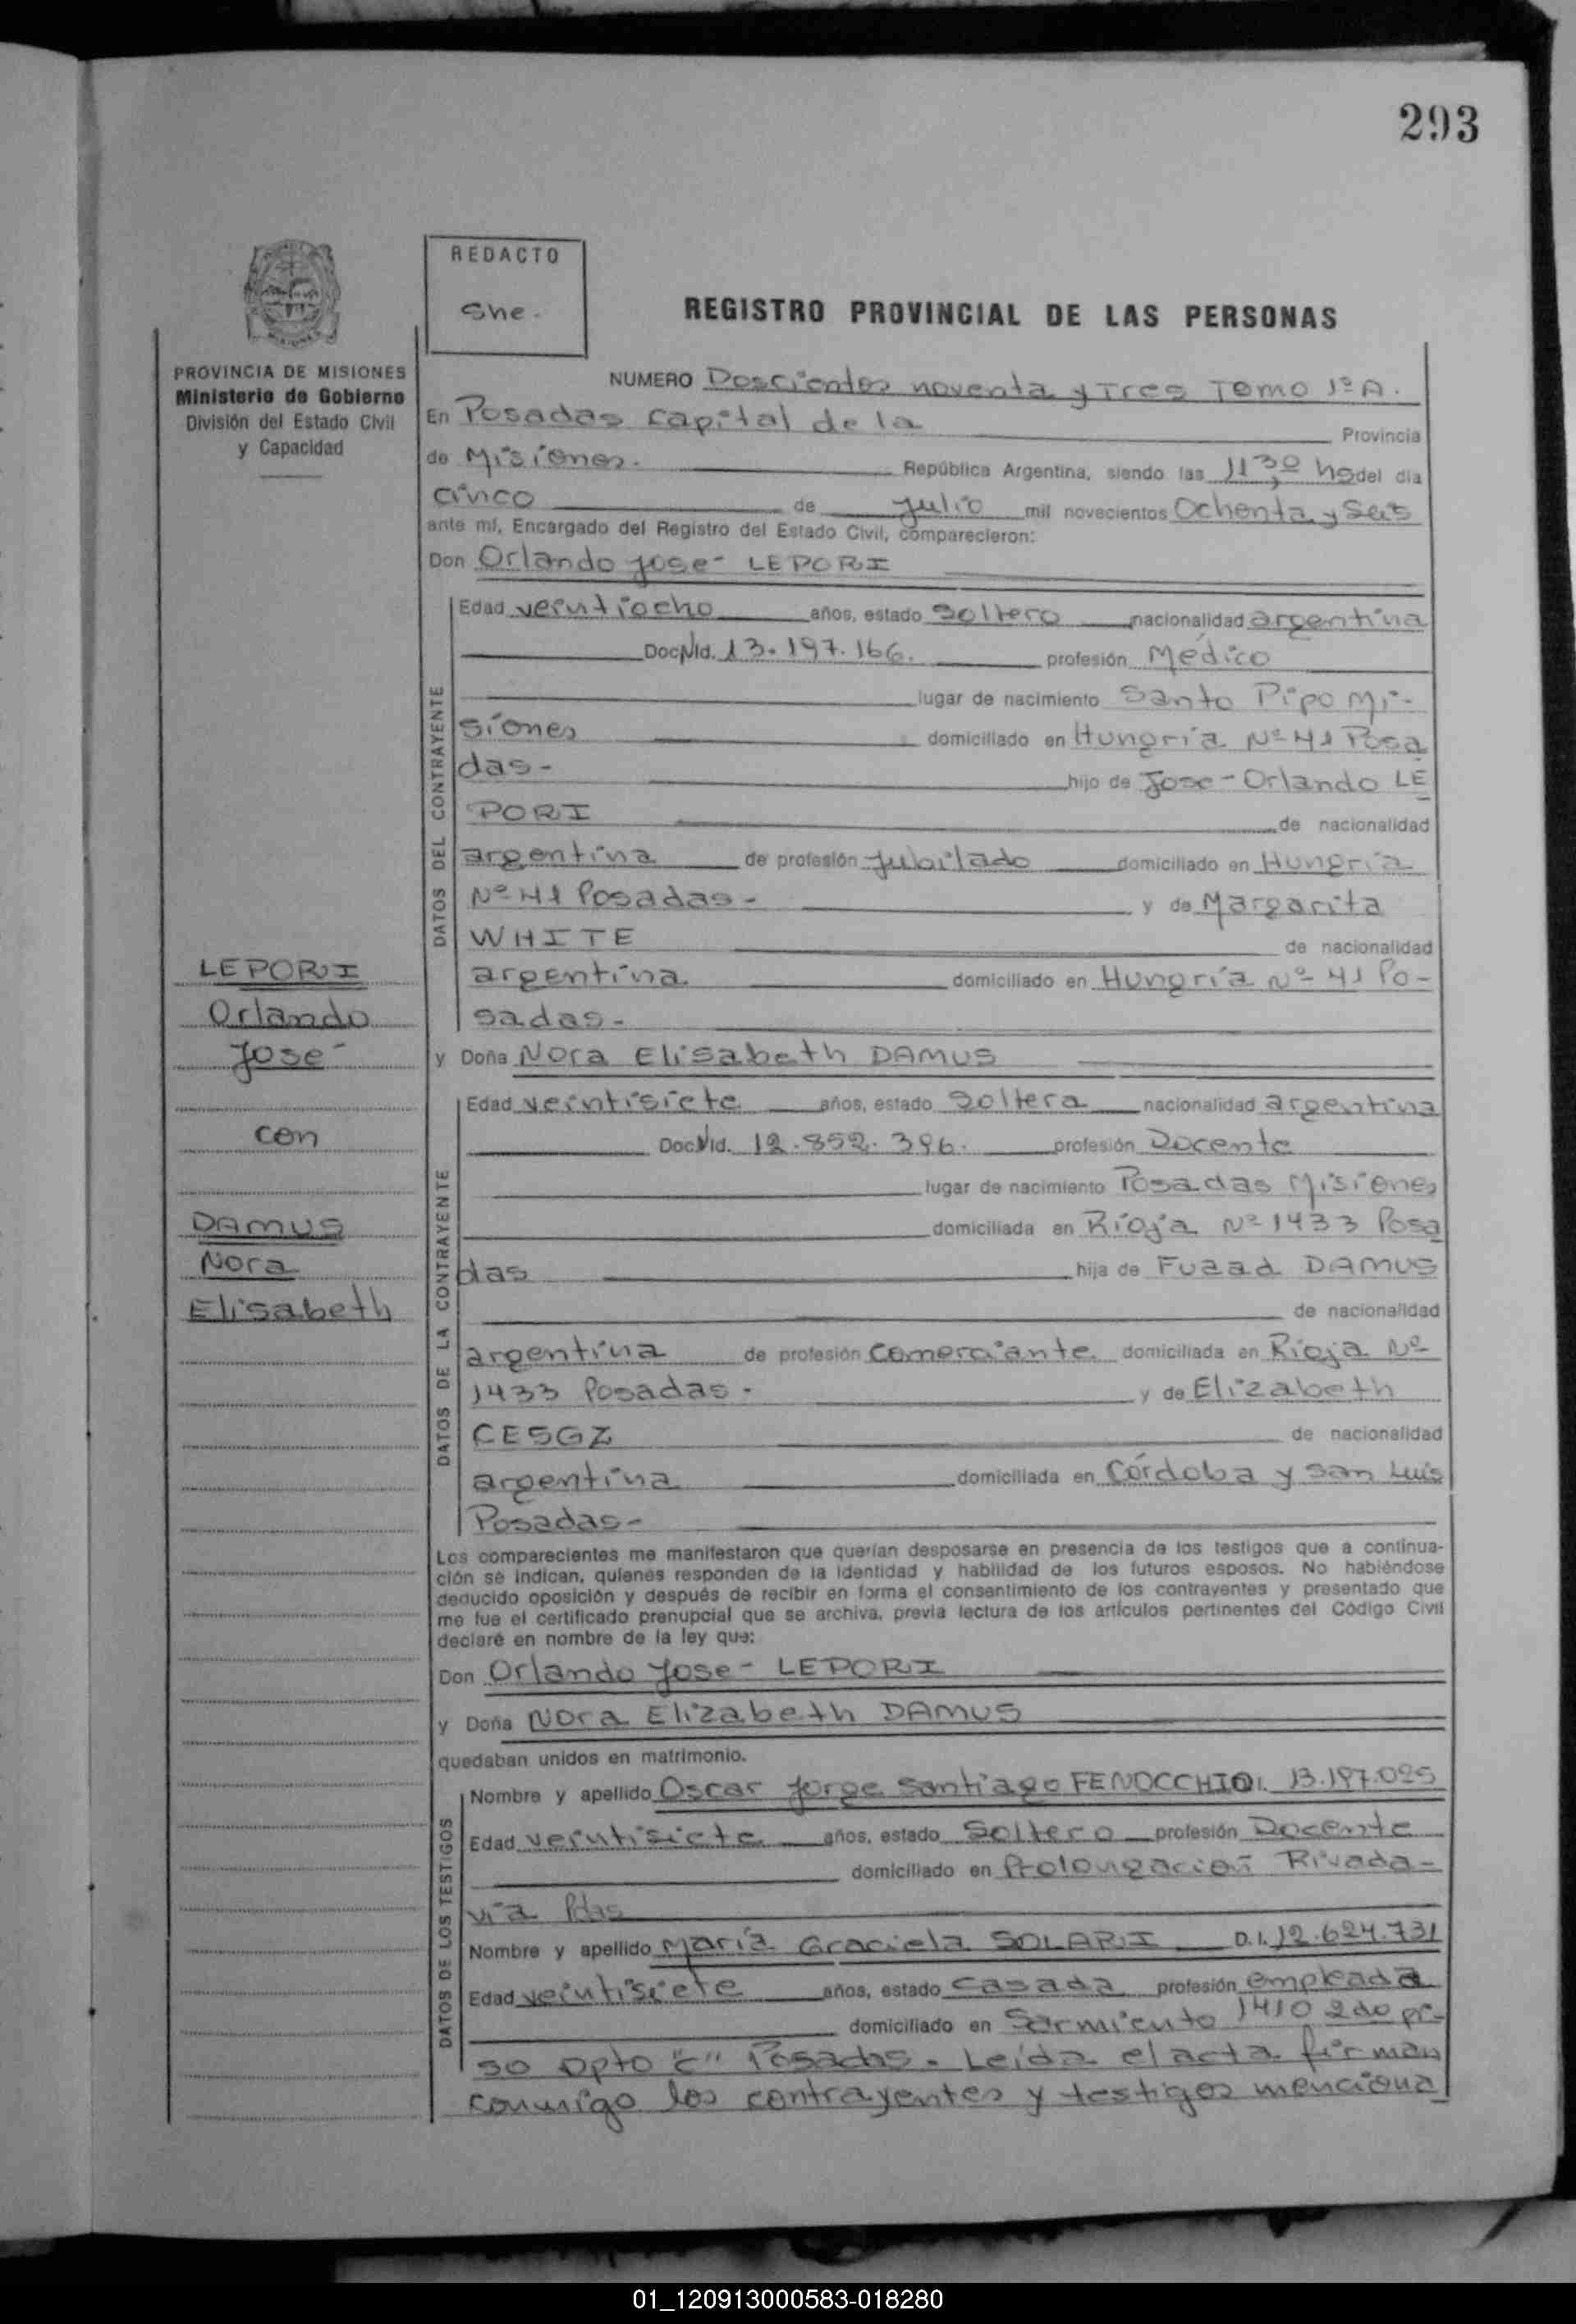 293
REDACTO
She.
REGISTRO PROVINCIAL DE LAS PERSONAS
PROVINCIA DE MISIONES
Ministerio de Gobierno
División del Estado Civil
y Capacidad
NUMERO Doscientos noventa y Tres Tomo 1º A.
En Posadas capital de la Provincia
de Misiones. República Argentina, siendo las 11,30 hs del día
cinco de julio mil novecientos Ochenta y Seis
ante mí, Encargado del Registro del Estado Civil, comparecieron:
Don Orlando José LEPORI
DATOS DEL CONTRAYENTE
Edad veintiocho años, estado Soltero nacionalidad argentina
Doc. N Id. 13.197.166. profesión Médico
lugar de nacimiento Santo Pipo Mi-
siones domiciliado en Hungría Nº 41 Posa
das- hijo de José Orlando LE
PORI de nacionalidad
argentina de profesión jubilado domiciliado en Hungría
Nº 41 Posadas- y de Margarita
WHITE de nacionalidad
argentina domiciliado en Hungría Nº 41 Po-
sadas-
LEPORI
Orlando
José
con
DAMUS
Nora
Elisabeth
y Doña Nora Elisabeth DAMUS
DATOS DE LA CONTRAYENTE
Edad veintisiete años, estado Soltera nacionalidad argentina
Doc. N Id. 12.852.396. profesión Docente
lugar de nacimiento Posadas Misiones
domiciliada en Rioja Nº 1433 Posa
das hija de Fuaad DAMUS
de nacionalidad
argentina de profesión comerciante domiciliada en Rioja Nº
1433 Posadas. y de Elizabeth
CESGZ de nacionalidad
argentina domiciliada en Córdoba y San Luis
Posadas-
Los comparecientes me manifestaron que querían desposarse en presencia de los testigos que a continua-
ción se indican, quienes responden de la identidad y habilidad de los futuros esposos. No habiéndose
deducido oposición y después de recibir en forma el consentimiento de los contrayentes y presentado que
me fue el certificado prenupcial que se archiva, previa lectura de los artículos pertinentes del Código Civil
declaré en nombre de la ley que:
Don Orlando José LEPORI
y Doña Nora Elizabeth DAMUS
quedaban unidos en matrimonio.
DATOS DE LOS TESTIGOS
Nombre y apellido Oscar Jorge Santiago FENOCCHIO I. 13.197.025
Edad veintisiete años, estado Soltero profesión Docente
domiciliado en Prolongación Rivada-
via Pdas
Nombre y apellido María Graciela SOLARI D.I. 12.624.731
Edad veintisiete años, estado casada profesión empleada
domiciliado en Sarmiento 1410 2do pi-
so Dpto "c" Posadas. Leída el acta firman
conmigo los contrayentes y testigos menciona
01_120913000583-018280